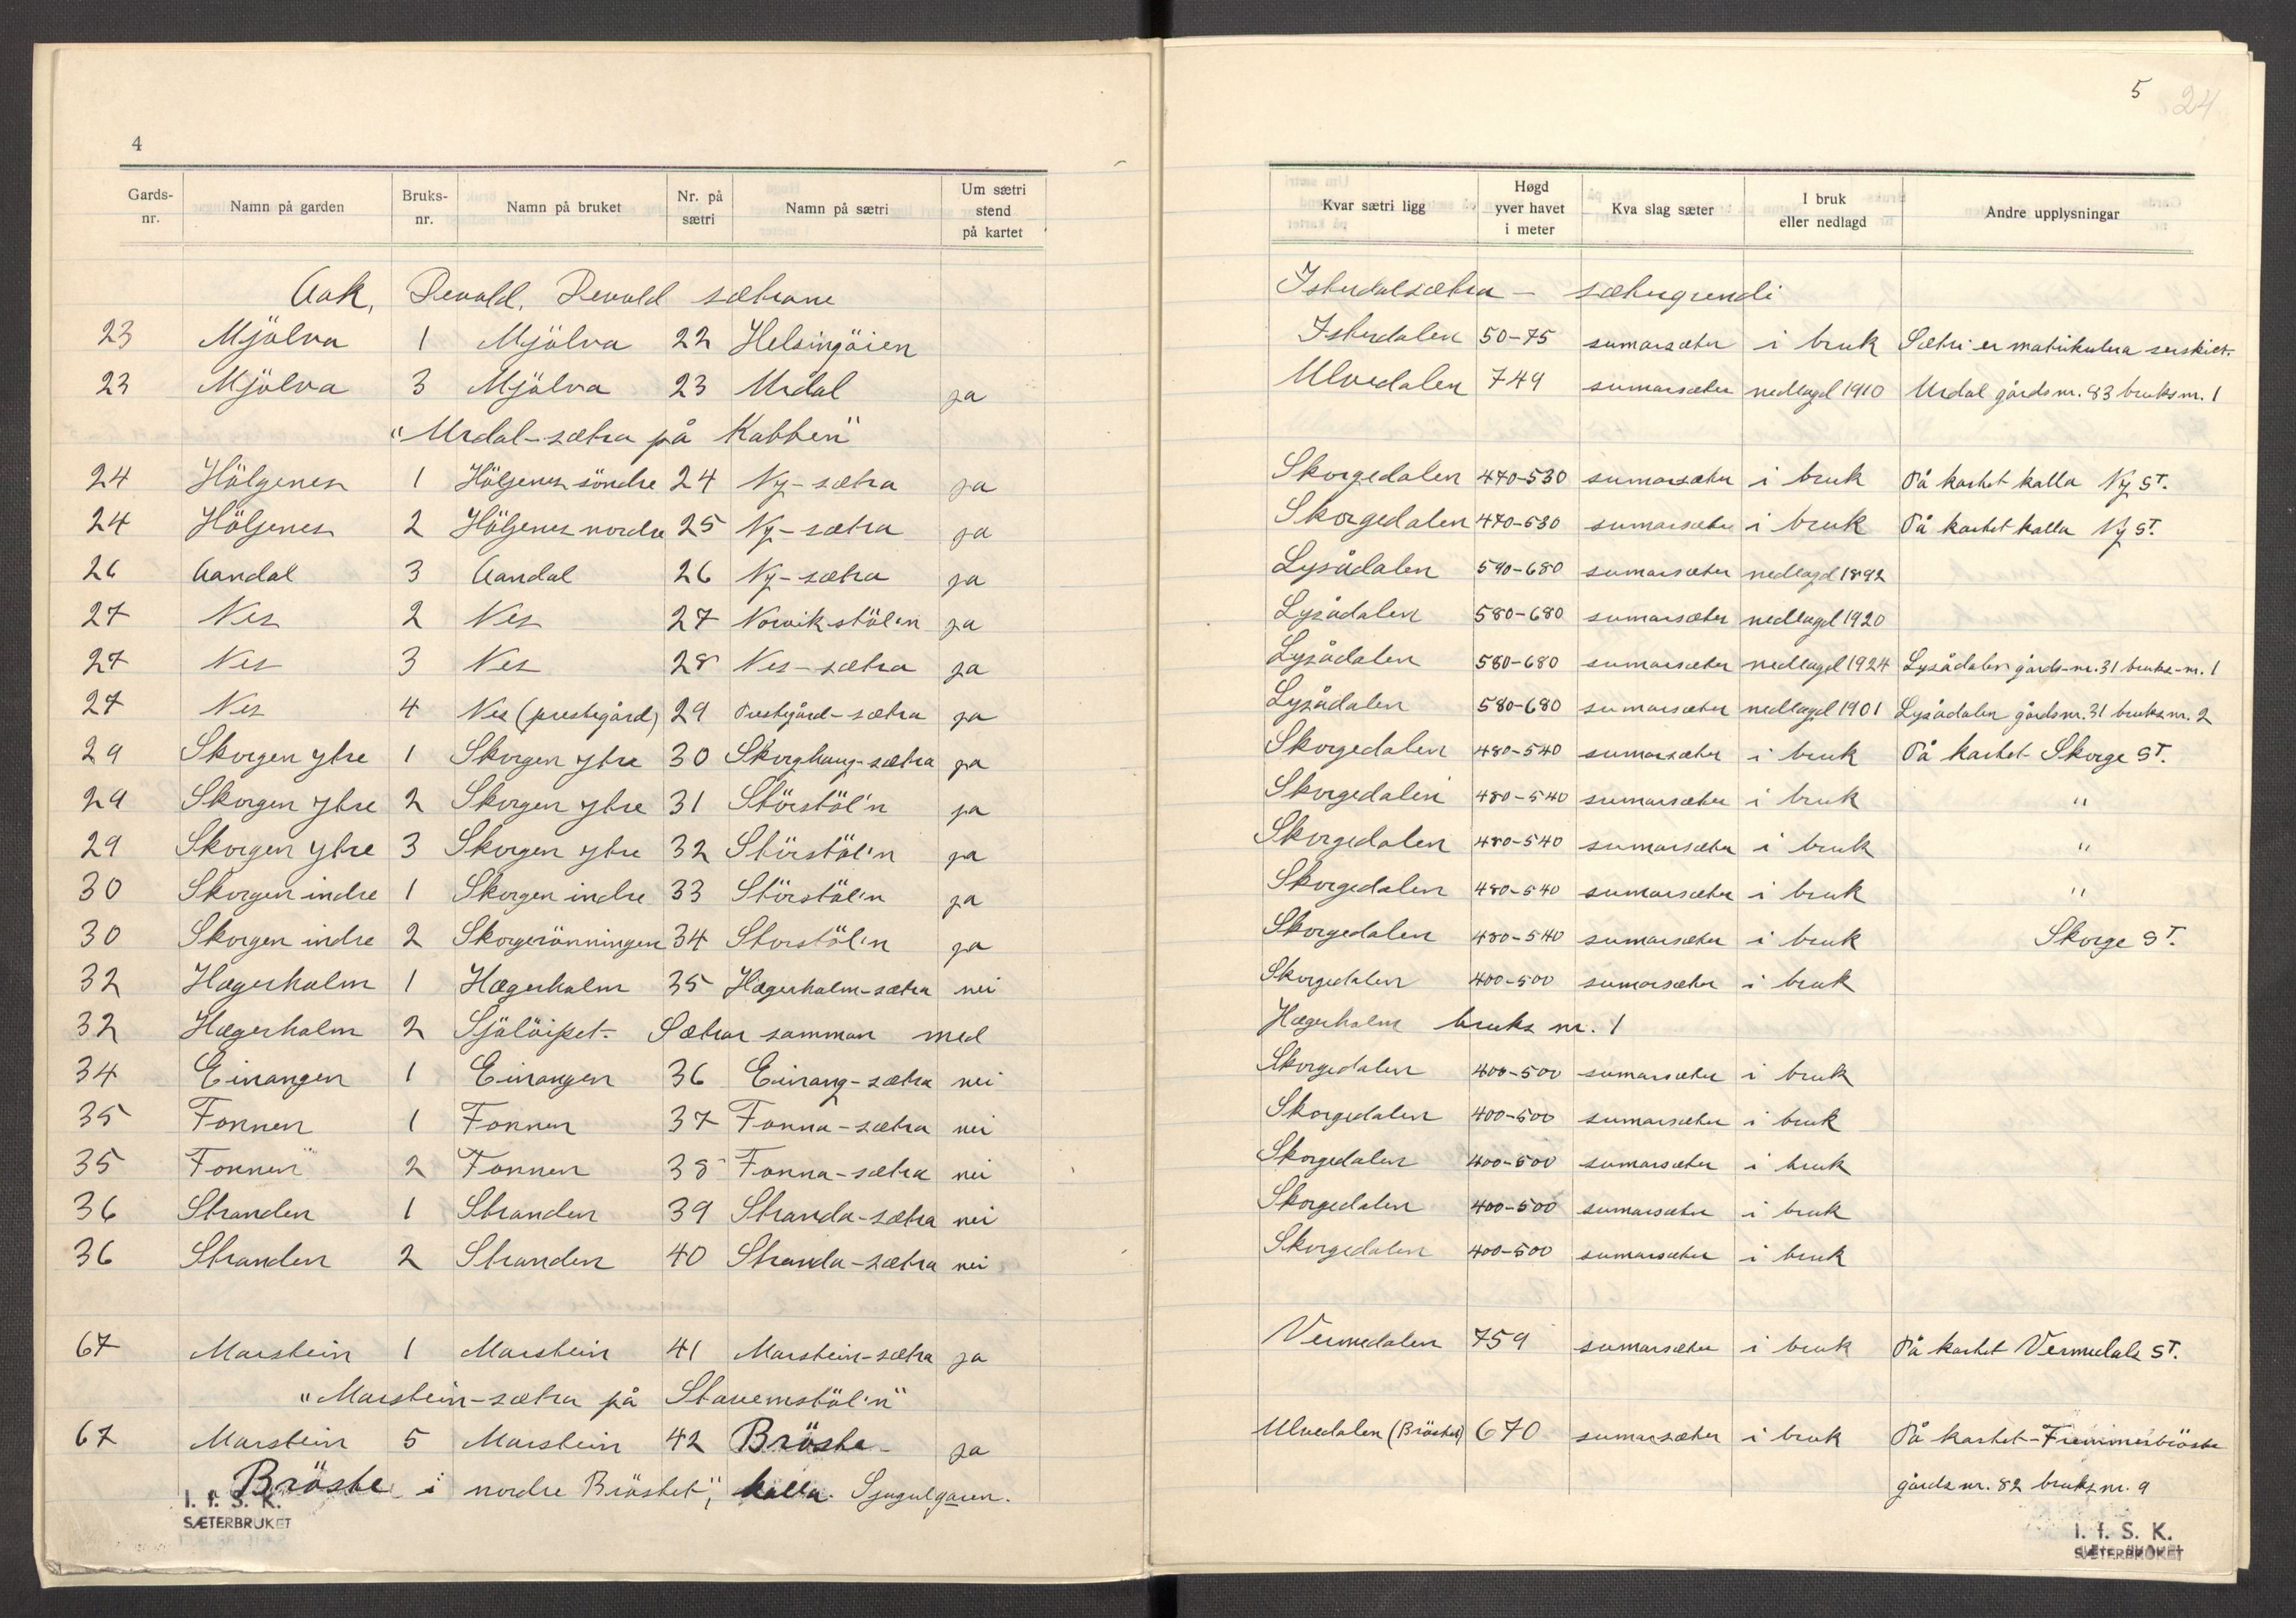 4
Gards-nr. Namn på garden Bruks-nr. Namn på bruket Nr. på sætri Namn på sætri Um sætri stend på kartet
Aak, Devold, Devold sætrane
23 Mjölva 1 Mjölva 22 Helsingöien
23 Mjölva 3 Mjölva 23 Urdal ja
"Urdal-sætra på Kabben"
24 Hölgenes 1 Hölgenes söndre 24 Ny-sætra ja
24 Hölgenes 2 Hölgenes nordre 25 Ny-sætra ja
26 Aandal 3 Aandal 26 Ny-sætra ja
27 Nes 2 Nes 27 Norvik-stöl'n ja
27 Nes 3 Nes 28 Nes-sætra ja
27 Nes 4 Nes (prestegård) 29 Prestegård-sætra ja
29 Skorgen ytre 1 Skorgen ytre 30 Skorghaug-sætra ja
29 Skorgen ytre 2 Skorgen ytre 31 Störstöl'n ja
29 Skorgen ytre 3 Skorgen ytre 32 Störstöl'n ja
30 Skorgen indre 1 Skorgen indre 33 Störstöl'n ja
30 Skorgen indre 2 Skorgerönningen 34 Storstöl'n ja
32 Hægerholm 1 Hægerholm 35 Hægerholm-sætra nei
32 Hægerholm 2 Sjölöipet. Sætrar samman med
34 Einangen 1 Einangen 36 Einang-sætra nei
35 Fonnen 1 Fonnen 37 Fonna-sætra nei
35 Fonnen 2 Fonnen 38 Fonna-sætra nei
36 Stranden 1 Stranden 39 Stranda-sætra nei
36 Stranden 2 Stranden 40 Stranda-sætra nei
67 Marstein 1 Marstein 41 Marstein-sætra ja
"Marstein-sætra på Stavemstöl'n"
67 Marstein 5 Marstein 42 Bröste ja
Bröste i nordre Bröstet", kalla Sjugulgaren.
I. f. S. K.
SÆTERBRUKET
5 24
Kvar sætri ligg Høgd yver havet i meter Kva slag sæter I bruk eller nedlagd Andre upplysningar
Isterdalsætra - sætergrendi
Isterdalen 50-75 sumarsæter i bruk Sætri er matrikulera serskict.
Ulvedalen 749 sumarsæter nedlagd 1910 Urdal gårdsnr. 83 bruksnr. 1
Skorgedalen 470-530 sumarsæter i bruk På kartet kalla Ny ST.
Skorgedalen 470-530 sumarsæter i bruk På kartet kalla Ny ST.
Lysådalen 590-680 sumarsæter nedlagd 1892
Lysådalen 580-680 sumarsæter nedlagd 1920
Lysådalen 580-680 sumarsæter nedlagd 1924 Lysådalen gårds-nr. 31 bruks-nr. 1
Lysådalen 580-680 sumarsæter nedlagd 1901 Lysådalen gårdsnr. 31 bruksnr. 2
Skorgedalen 480-540 sumarsæter i bruk På kartet Skorge ST.
Skorgedalen 480-540 sumarsæter i bruk "
Skorgedalen 480-540 sumarsæter i bruk "
Skorgedalen 480-540 sumarsæter i bruk "
Skorgedalen 480-540 sumarsæter i bruk Skorge ST.
Skorgedalen 400-500 sumarsæter i bruk
Hægerholm bruks nr. 1
Skorgedalen 400-500 sumarsæter i bruk
Skorgedalen 400-500 sumarsæter i bruk
Skorgedalen 400-500 sumarsæter i bruk
Skorgedalen 400-500 sumarsæter i bruk
Skorgedalen 400-500 sumarsæter i bruk
Vermedalen 759 sumarsæter i bruk På kartet Vermedals ST.
Ulvedalen (Bröstet) 670 sumarsæter i bruk På kartet-Fremmerbröste
gårds nr. 82 bruksnr. 9
I. f. S. K.
SÆTERBRUKET